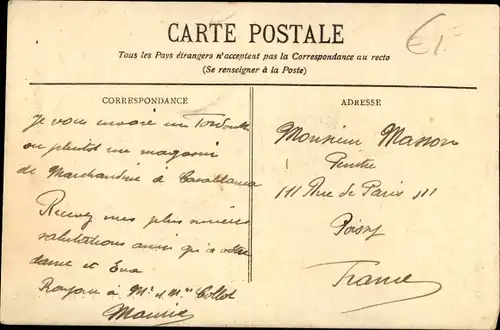 CARTE POSTALE
Tous les Pays étrangers n'acceptent pas la Correspondance au recto
(Se renseigner à la Poste)
CORRESPONDANCE
Je vous envoie un
ou plutôt un magasin
de Marchandise à Casablanca
Recevez mes plus sincères
salutations ainsi qu'à votre
dame et Eva
Bonjour à Mr et Mme Collot
Maurice
ADRESSE
Monsieur Masson
Peintre
111 Rue de Paris 111
Poissy
France